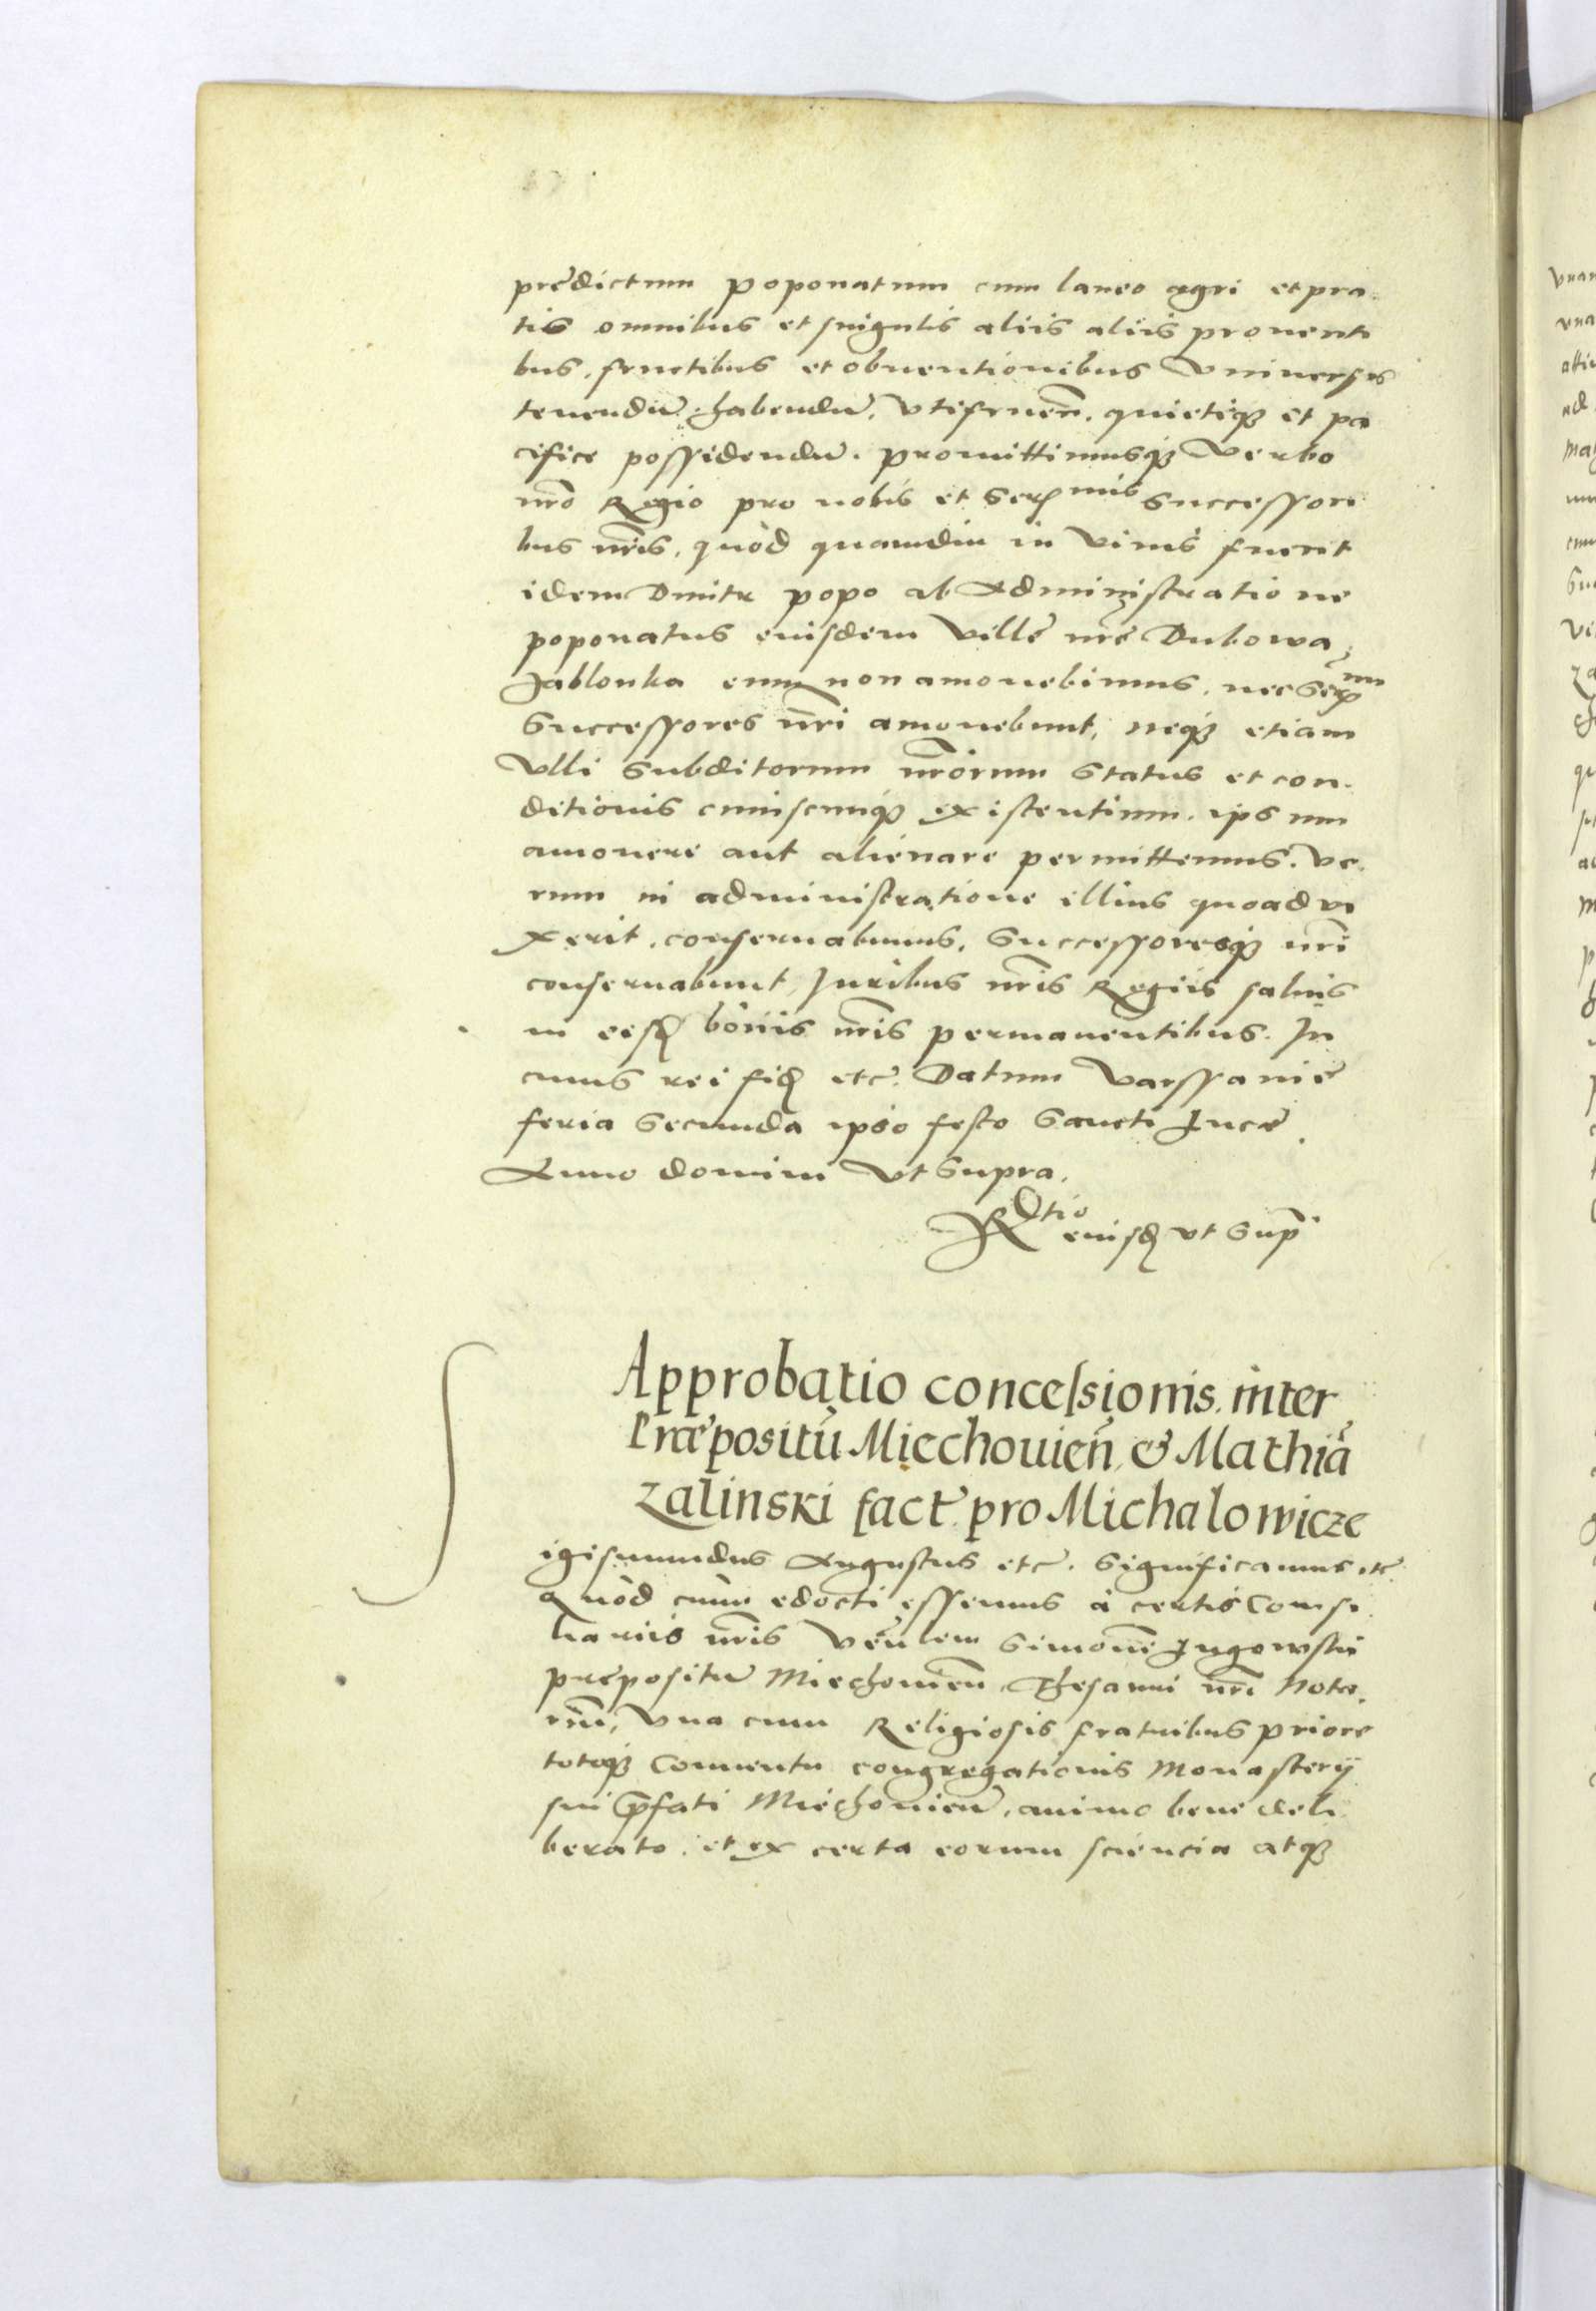 predictum poponatum cum laneo agri et pra
tis omnibus et singulis aliis aliis prouenti
bus, fructibus et obuentionibus vniuersis
tenendum habendum, vtifruen̄. quieteq̢ et pa
cifice possidendum. promittimusq̢ verbo
nr̄o Regio pro nobis et Ser̄mis Successori
bus nr̄is, quòd quamdiu in viuis fuerit
idem Dmitr popo ab Administratione
poponatus eiusdem ville nr̄e Dubowa
Jablonka eum non amouebimus, nec Ser̄mi
Successores nr̄i amouebunt, neq̢ etiam
vlli subditorum nr̄orum status et con
ditionis cuiuscunq̢ existentium. ipsum
amouere aut alienare permittemus. Ve
rum in administratione illius quoad vi
xerit, conseruabimus, Successoresq̢ nr̄i
conseruabunt, Juribus nr̄is Regiis saluis
in eisd̄ bonis nr̄is permanentibus. In
cuius rei fid̄ etc. Datum Varssauie
feria Secunda ipso festo Sancti Luce
Anno domini vt Supra.
Rĺtio eiusd̄ vt Sup̄
Approbatio concessionis inter
Præpositū Miechouien̄ & Mathiā
Zalinski factę pro Michalowicze
Sigismundus Augustus etc. Significamus etc
Quòd cum edocti essemus à certis Consi
liariis nr̄is Ven̄lem Simonē Lugowski
prepositum Miechouien̄ Thesauri nr̄i Nota
rium, vna cum Religiosis fratribus priore
totoq̢ Conuentu congregationis Monasterij
sui p̄fati Miechouien̄, animo bene deli
berato, et ex certa eorum sciencia atq̢